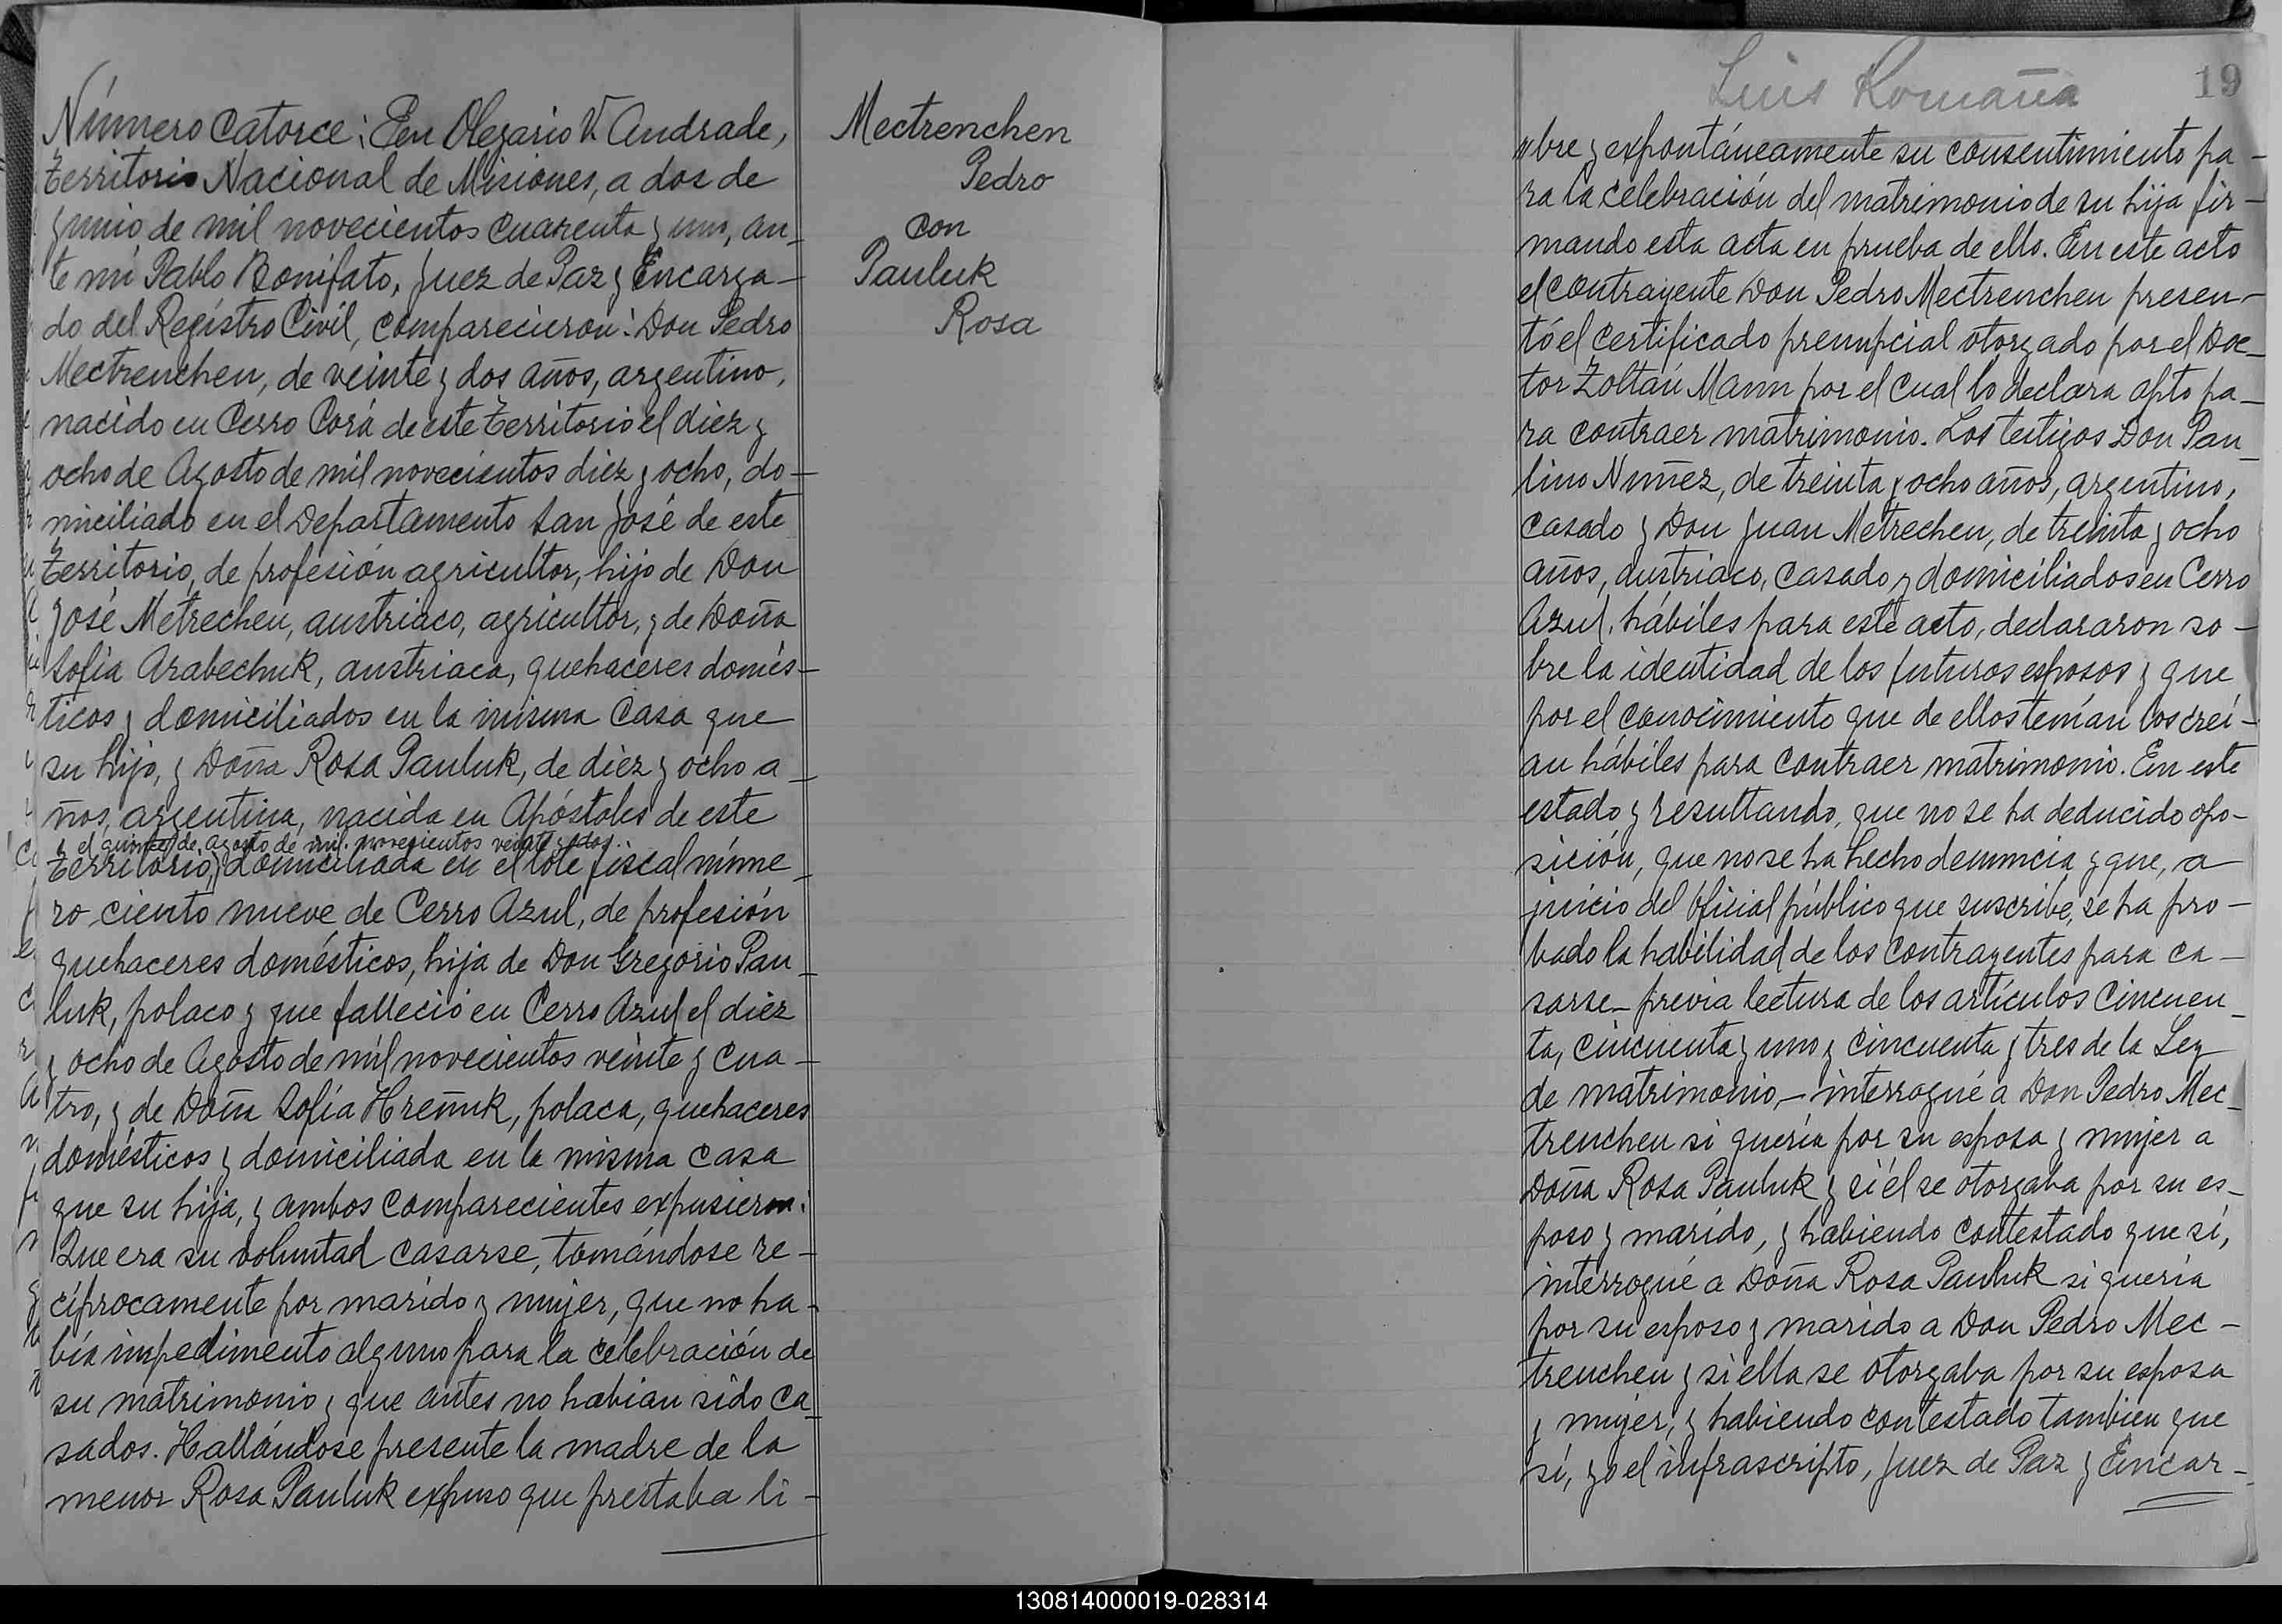 Número catorce: En Olegario V. Andrade,
Territorio Nacional de Misiones, a dos de
Junio de mil novecientos cuarenta y uno, an-
te mí Pablo Bonifato, Juez de Paz y Encarga-
do del Registro Civil, comparecieron: Don Pedro
Mectrenchen, de veinte y dos años, argentino,
nacido en Cerro Corá de este Territorio el diez y
ocho de Agosto de mil novecientos diez y ocho, do-
miciliado en el Departamento San José de este
Territorio, de profesión agricultor, hijo de Don
José Metrechen, austriaco, agricultor, y de Doña
Sofia Arabechuk, austriaca, quehaceres domés-
ticos y domiciliados en la misma casa que
su hijo, y Doña Rosa Pauluk, de diez y ocho a-
ños, argentina, nacida en Apóstoles de este
el quince de agosto de mil novecientos veinte y dos
Territorio, domiciliada en el lote fiscal núme-
ro ciento nueve de Cerro Azul, de profesión
quehaceres domésticos, hija de Don Gregorio Pau-
luk, polaco y que falleció en Cerro Azul el diez
y ocho de Agosto de mil novecientos veinte y cua-
tro, y de Doña Sofía Hreñuk, polaca, quehaceres
domésticos y domiciliada en la misma casa
que su hija, y ambos comparecientes expusieron:
Que era su voluntad casarse, tomándose re-
cíprocamente por marido y mujer, que no ha-
bía impedimento alguno para la celebración de
su matrimonio y que antes no habian sido ca-
sados. Hallándose presente la madre de la
menor Rosa Pauluk expuso que prestaba li-
Mectrenchen
Pedro
con
Pauluk
Rosa
Luis Romaña
19
"bre y expontáneamente su consentimiento pa-
ra la celebración del matrimonio de su hija fir-
mando esta acta en prueba de ello. En este acto
el contrayente Don Pedro Mectrenchen presen-
tó el certificado prenupcial otorgado por el Doc-
tor Zoltan Mann por el cual lo declara apto pa-
ra contraer matrimonio. Los testigos Don Pau-
lino Nuñez, de treinta y ocho años, argentino,
casado y Don Juan Metrechen, de treinta y ocho
años, austriaco, casado, y domiciliados en Cerro
Azul, hábiles para este acto, declararon so-
bre la identidad de los futuros esposos y que
por el conocimiento que de ellos tenían los creí-
an hábiles para contraer matrimonio. En este
estado y resultando, que no se ha deducido opo-
sición, que no se ha hecho denuncia y que, a
juicio del Oficial público que suscribe, se ha pro-
bado la habilidad de los contrayentes para ca-
sarse - previa lectura de los artículos cincuen-
ta, cincuenta y uno y cincuenta y tres de la Ley
de matrimonio, - interrogué a Don Pedro Mec-
trenchen si quería por su esposa y mujer a
Doña Rosa Pauluk y si él se otorgaba por su es-
poso y marido, y habiendo contestado que sí,
interrogué a Doña Rosa Pauluk si quería
por su esposo y marido a Don Pedro Mec-
trenchen y si ella se otorgaba por su esposa
y mujer, y habiendo contestado tambien que
sí, yo el infrascripto, Juez de Paz y Encar-
130814000019-028314